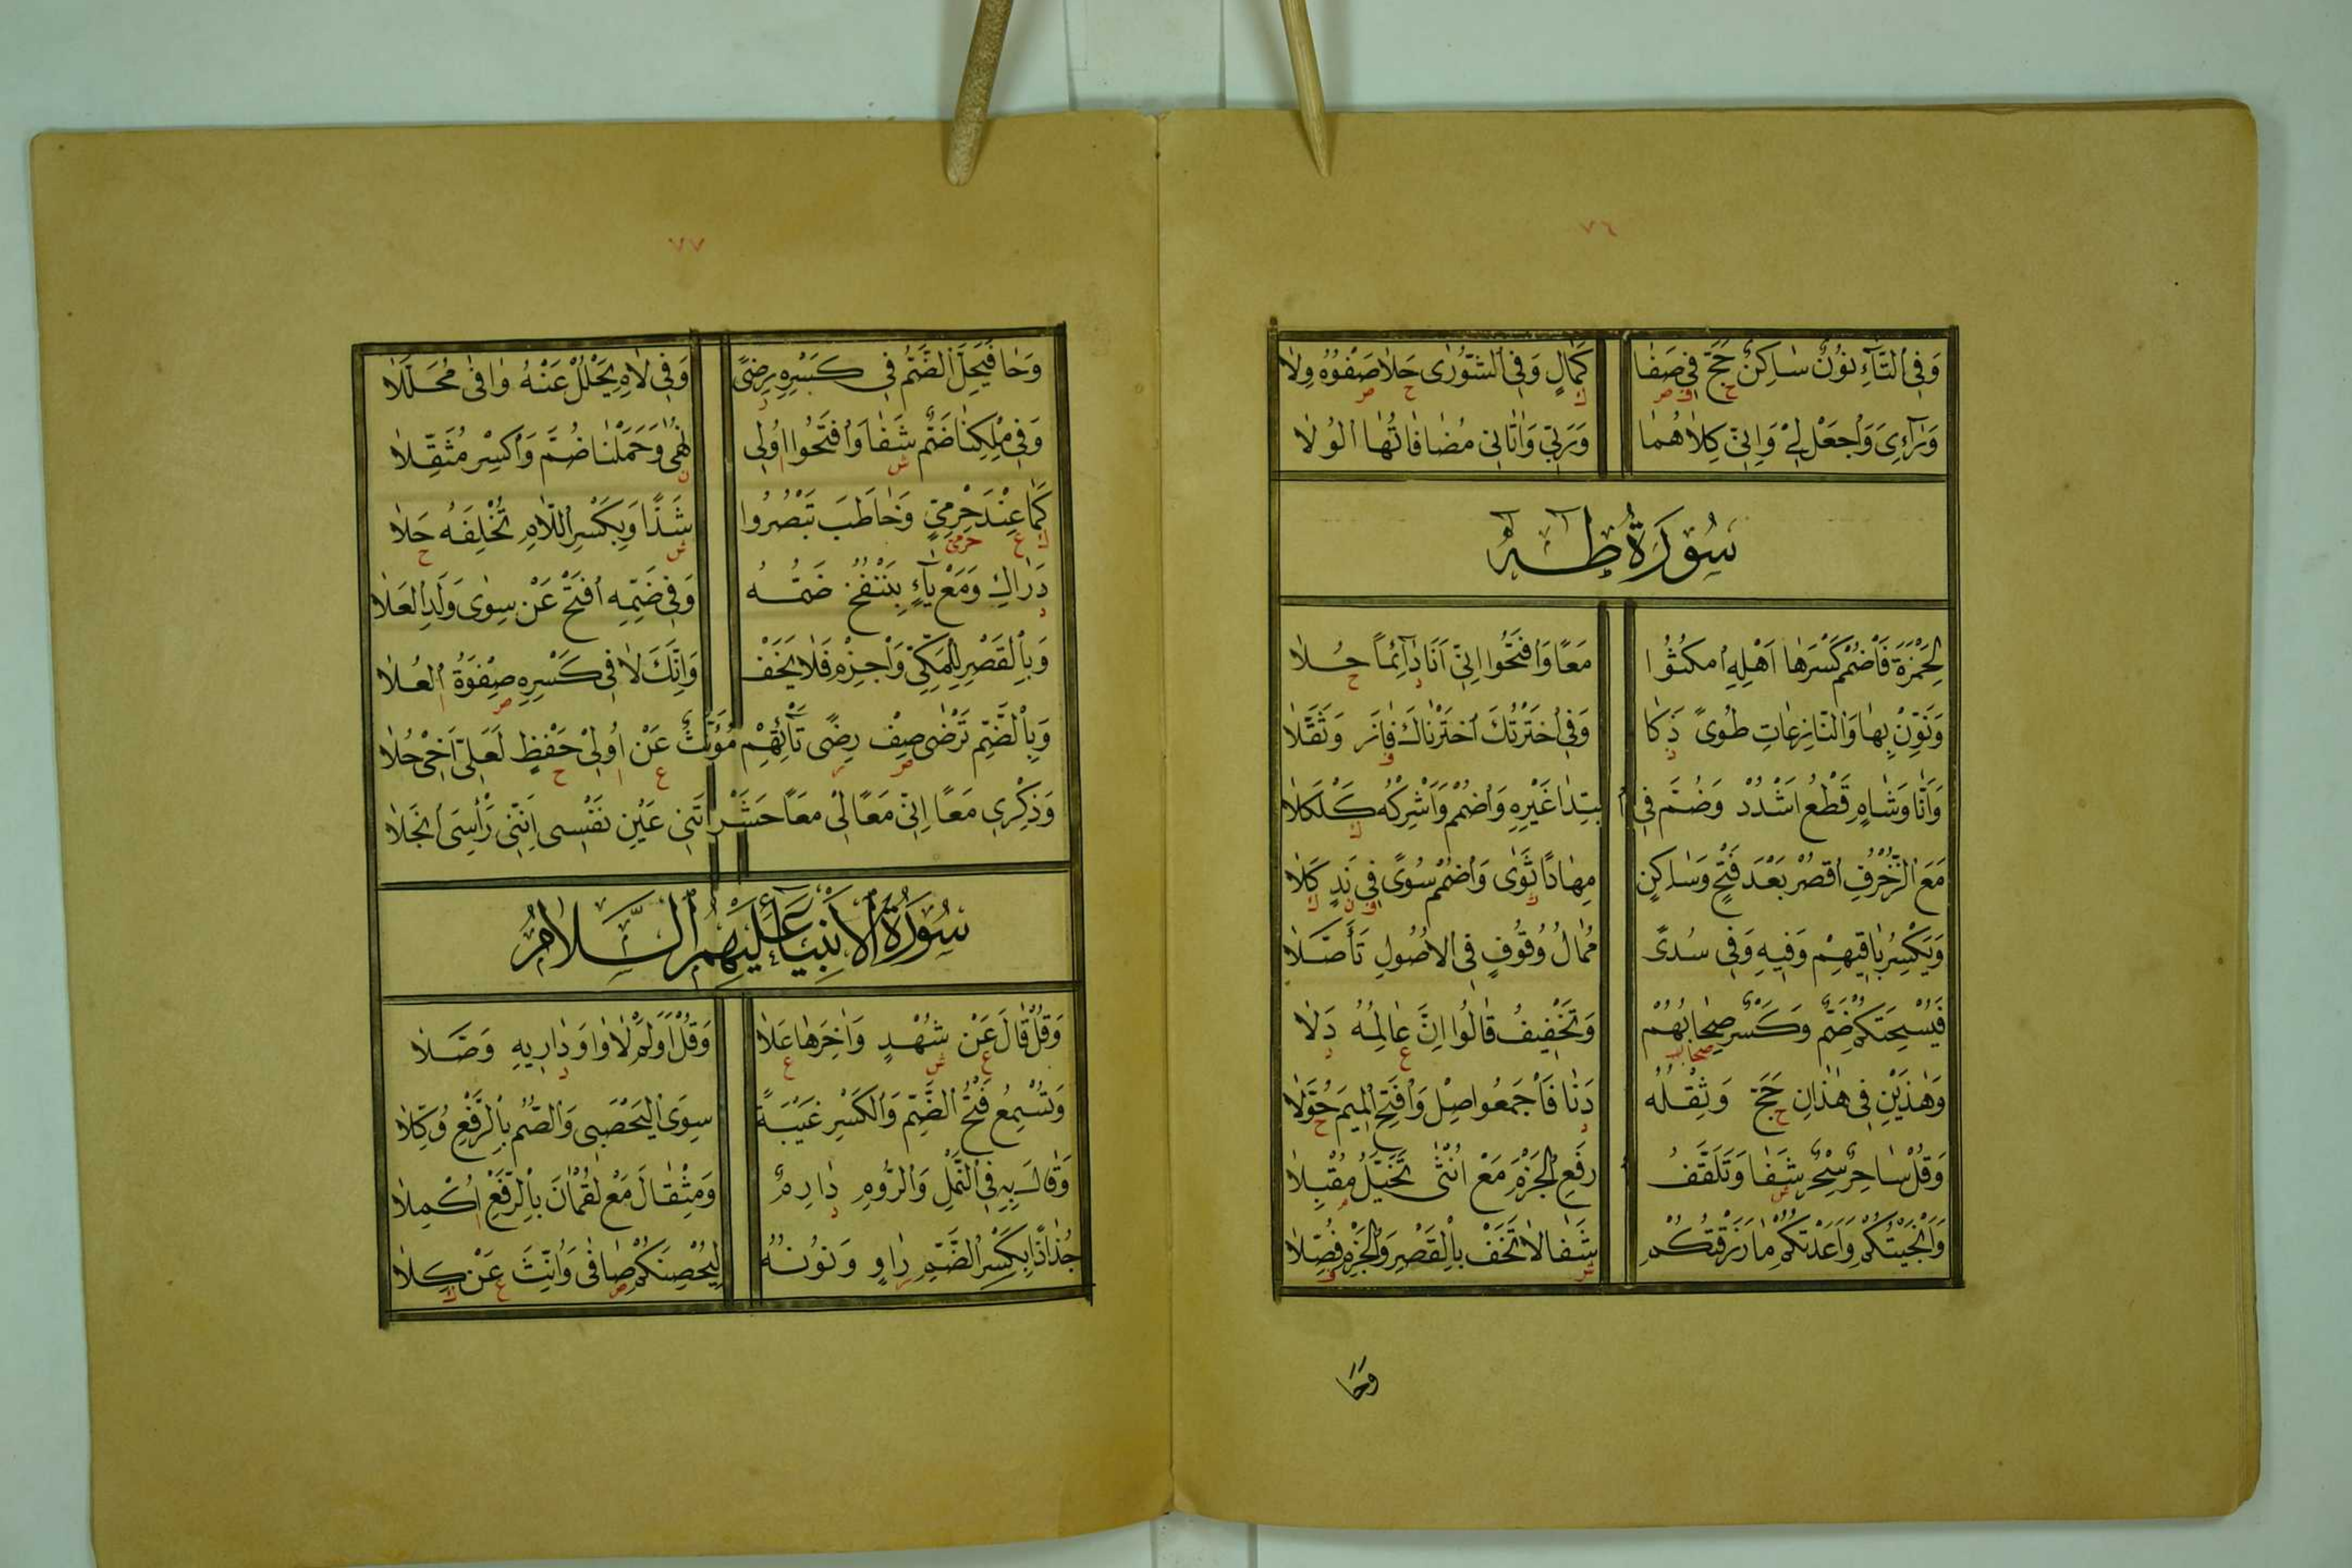 ٧٦
وَفِى ٱلتَّآءِ نُونٌ سَاكِنٌ حَجَّ فِى صَفَا كَمَالٍ وَفِى ٱلشُّورٰى حَلَا صَفْوُهُ وِلَا
ح ف ص ك ح ص
وَرَآءِىَ وَٱجْعَلْ لِى وَإِنِّى كِلَاهُمَا وَرَبِّى وَاٰتَانِى مُضَافَاتُهَا ٱلْوُلَا
سُورَةُ طٰهٰ
لِحَمْزَةَ فَٱضْمُمْ كَسْرَهَا اَهْلِهِ ٱمْكُثُوا مَعًا وَٱفْتَحُوا اِنِّى اَنَا دَآئِمًا حُلَا
د ح
وَنَوِّنْ بِهَا وَالنَّازِعَاتِ طُوًى ذَكَا وَفِى ٱخْتَرْتُكَ ٱخْتَرْنَاكَ فَازَ وَثَقَّلَا
ذ ف
وَاَنَّا وَشَامٍ قَطْعُ اشْدُدْ وَضُمَّ فِى ٱبْتِدَا غَيْرِهِ وَٱضْمُمْ وَاَشْرِكْهُ كَلْكَلَا
ك
مَعَ ٱلزُّخْرُفِ ٱقْصُرْ بَعْدَ فَتْحٍ وَسَاكِنٍ مِهَادًا ثَوٰى وَٱضْمُمْ سُوًى فِى نَدٍ كَلَا
ث ف ن ك
وَيَكْسِرُ بَاقِيهِمْ وَفِيهِ وَفِى سُدًى مُمَالُ وُقُوفٍ فِى ٱلْاُصُولِ تَأَصَّلَا
فَيُسْحِتَكُمْ ضَمٌّ وَكَسْرٌ صِحَابُهُمْ وَتَخْفِيفُ قَالُوا اِنَّ عَالِمُهُ دَلَا
صحاب ع د
وَهٰذَيْنِ فِى هٰذَانِ حَجَّ وَثِقْلُهُ دَنَا فَٱجْمَعُوا صِلْ وَٱفْتَحِ ٱلْمِيمَ حُوَّلَا
ح د ح
وَقُلْ سَاحِرٌ سِحْرٌ شَفَا وَتَلَقَّفُ ٱرْفَعِ ٱلْجَزْمَ مَعْ اُنْثٰى تَخَيَّلُ مُقْبِلَا
ش م
وَاَنْجَيْتُكُمْ وَاعَدْتُكُمْ مَا رَزَقْتُكُمْ شَفَا لَا تَخَفْ بِٱلْقَصْرِ وَٱلْجَزْمِ فُصِّلَا
ش ف
وَحَا
٧٧
وَحَا فَيَحِلَّ ٱلضَّمُّ فِى كَسْرِهِ رِضًى وَفِى لَامِ يَحْلِلْ عَنْهُ وَافٰى مُحَلَّلَا
ر
وَفِى مُلْكِنَا ضَمٌّ شَفَا وَٱفْتَحُوا اُولِى نُهًى وَحَمَلْنَا ضُمَّ وَٱكْسِرْ مُثَقِّلَا
ش ا ن
كَمَا عِنْدَ حِرْمِىٍّ وَخَاطَبَ تَبْصُرُوا شَذًا وَبِكَسْرِ ٱللَّامِ تُخْلِفَهُ حَلَا
ك ع حرمى ش ح
دَرَاكِ وَمَعْ يَآءٍ بِنَنْفُخُ ضَمُّهُ وَفِى ضَمِّهِ ٱفْتَحْ عَنْ سِوٰى وَلَدِ ٱلْعَلَا
د
وَبِٱلْقَصْرِ لِلْمَكِّى وَٱجْزِمْ فَلَا يَخَفْ وَاِنَّكَ لَا فِى كَسْرِهِ صِفْوَةُ ٱلْعُلَا
ص ا
وَبِٱلضَّمِّ تَرْضٰى صِفْ رِضًى تَأْتِهِمْ مُؤَنَّثٌ عَنْ اُولِى حِفْظٍ لَعَلِّى اَخِى حُلَا
ص ر ع ا ح
وَذِكْرِى مَعًا اِنِّى مَعًا لِى مَعًا حَشَرْتَنِى عَيْنِ نَفْسِى اِنَّنِى رَأْسِىَ ٱنْجَلَا
سُورَةُ ٱلْاَنْبِيَاءِ عَلَيْهِمُ ٱلسَّلَامُ
وَقُلْ قَالَ عَنْ شُهْدٍ وَاٰخِرُهَا عَلَا وَقُلْ اَوَلَمْ لَا وَاوَ دَارِيهِ وَصَّلَا
ع ش ع د
وَتُسْمِعُ فَتْحُ ٱلضَّمِّ وَٱلْكَسْرِ غَيْبَةً سِوَى ٱلْيَحْصَبِى وَٱلصُّمُّ بِٱلرَّفْعِ وُكِّلَا
وَقَالَ بِهِ فِى ٱلنَّمْلِ وَٱلرُّومِ دَارِمٌ وَمِثْقَالَ مَعْ لُقْمَانَ بِٱلرَّفْعِ اُكْمِلَا
د ا
جُذَاذًا بِكَسْرِ ٱلضَّمِّ رَاوٍ وَنُونُهُ لِيُحْصِنَكُمْ صَافٰى وَاُنِّثَ عَنْ كِلَا
ر ص ع ك